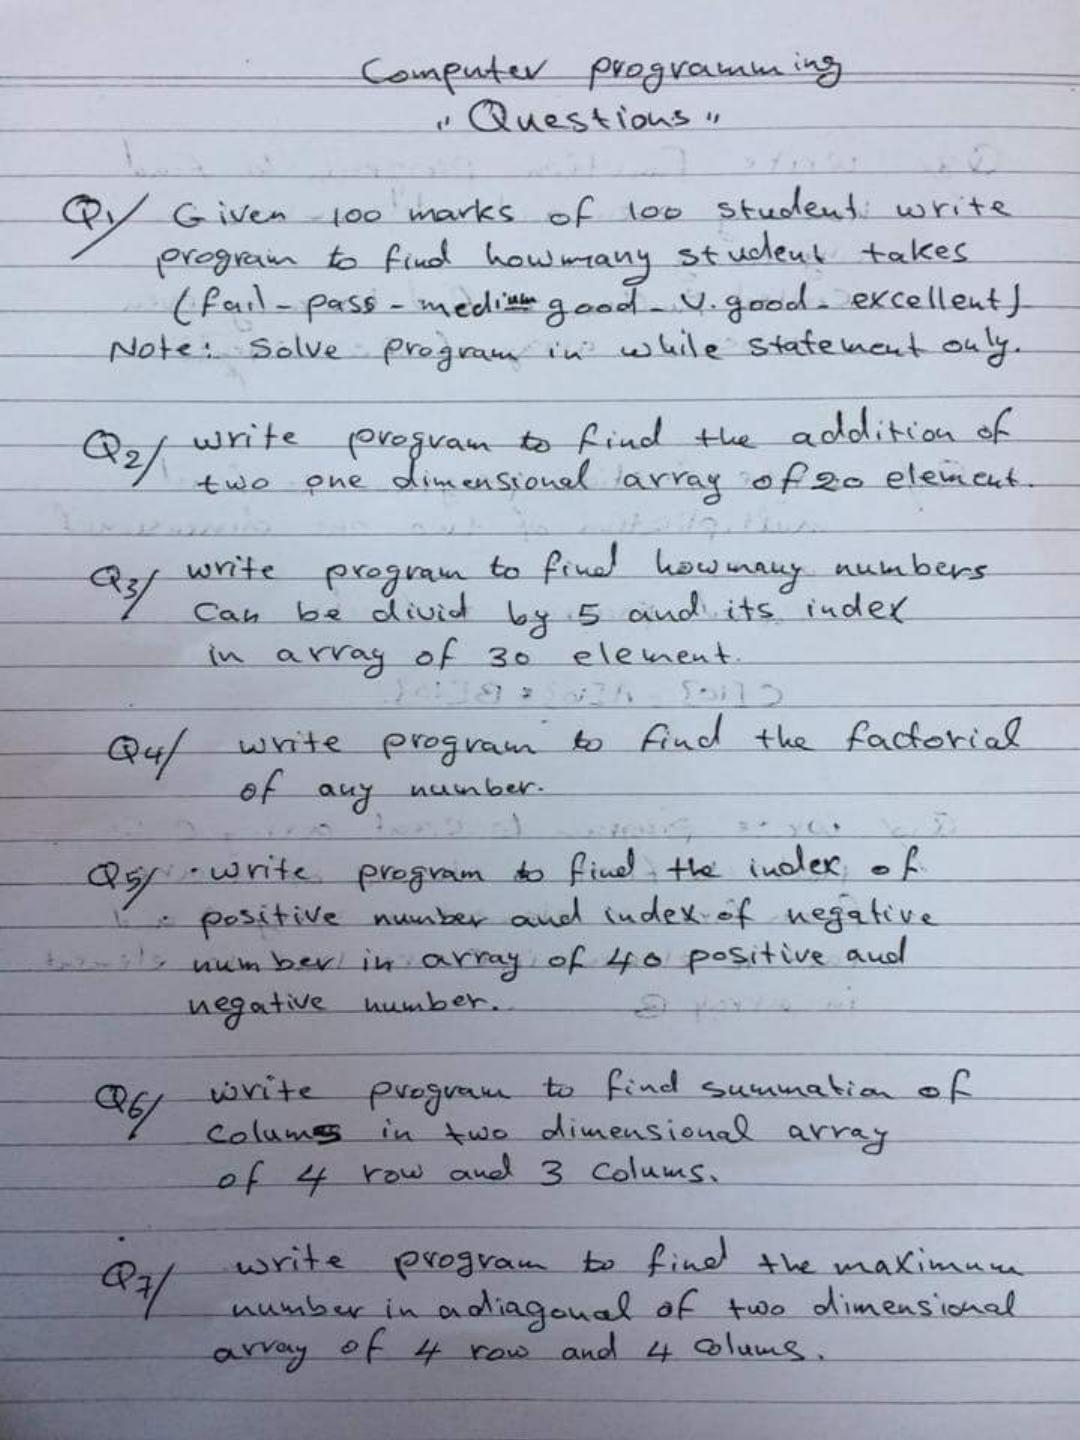 Computer programming
"Questions"
Q1/ Given 100 marks of 100 student write
program to find howmany student takes
(fail - pass - medium good - V. good - excellent)
Note: Solve program in while statement only.
Q2/ write program to find the addition of
two one dimensional array of 20 element.
Q3/ write program to find howmany numbers
Can be divid by 5 and its index
in array of 30 element.
Q4/ write program to find the factorial
of any number.
Q5/ write program to find the index of
positive number and index of negative
number in array of 40 positive and
negative number.
Q6/ write program to find summation of
Colums in two dimensional array
of 4 row and 3 Colums.
Q7/ write program to find the maximum
number in a diagonal of two dimensional
array of 4 row and 4 Colums.